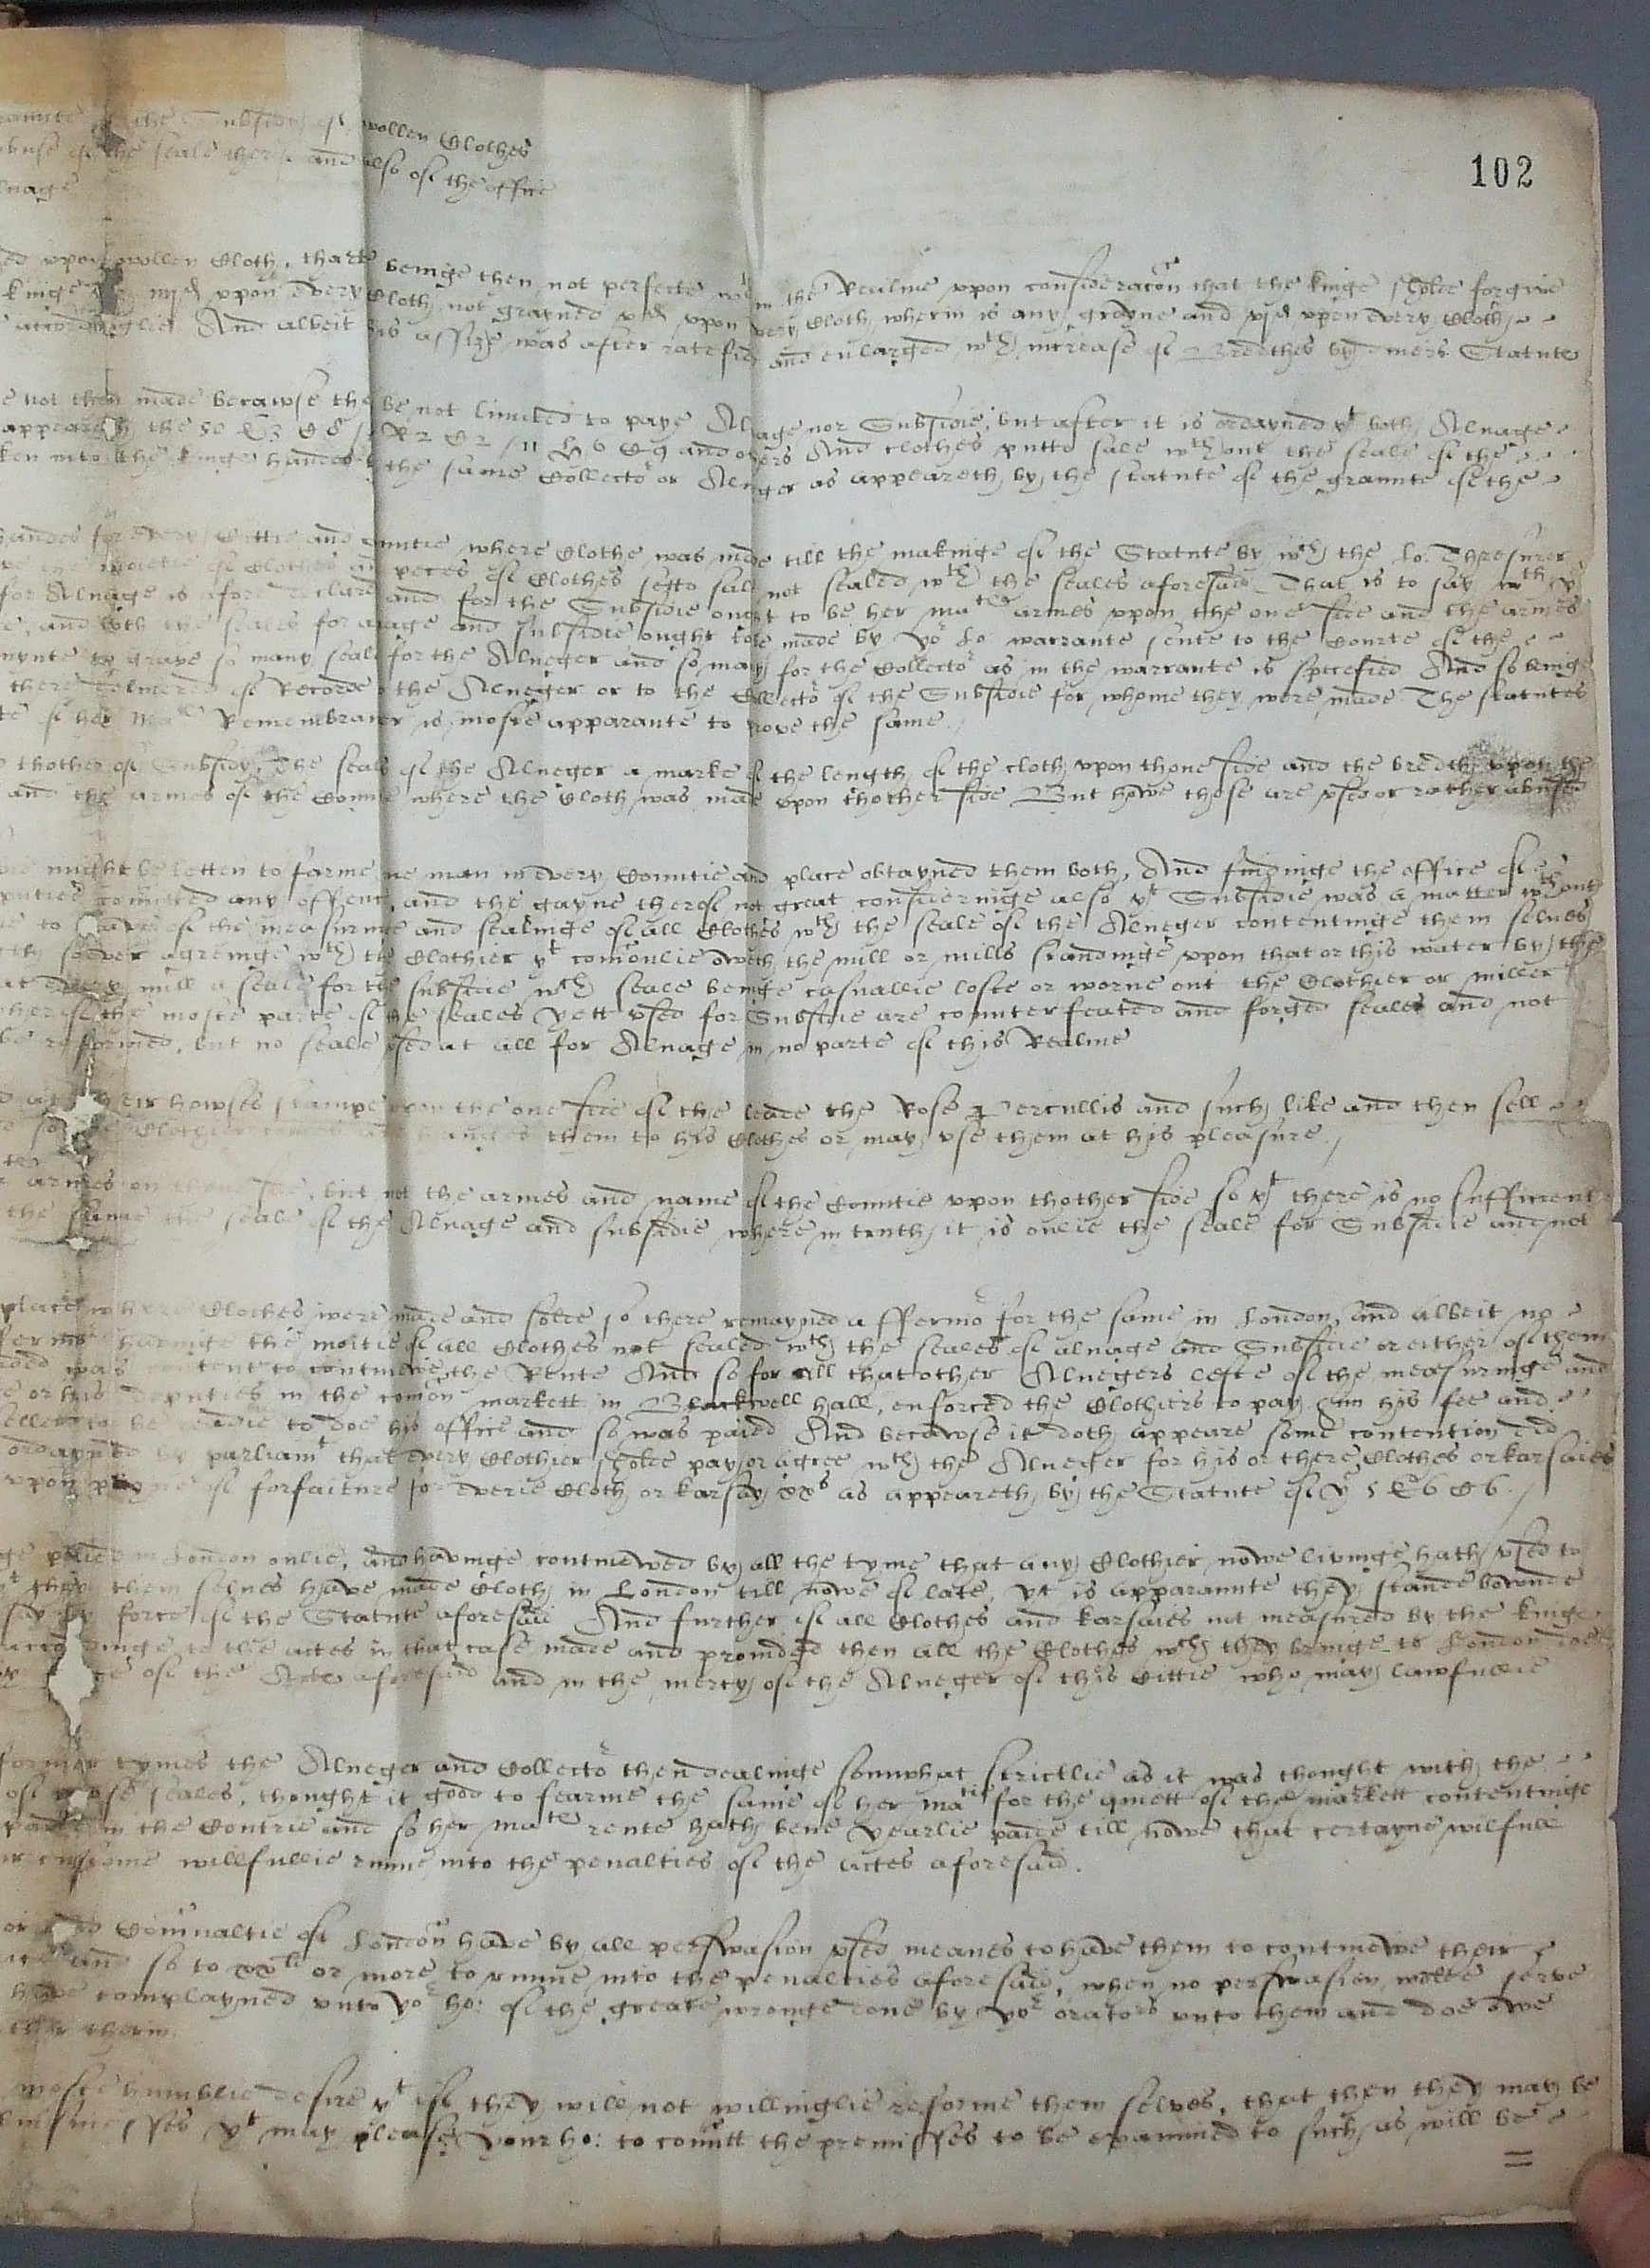 graunte of the Subsidy of wollen Clothes
abuse of the seale therof and also of the office
lnage
102
ed upon wollen Cloth, that beinge then not perfecte in the Realme upon consideracōn that the kinge sholde forgive
kinge iiijd upon every Cloth not grayned vd upon every Cloth wherin is any grayne and vjd upon every Cloth
accordinglie And albeit this assize was after ratefied and enlarged wth increase of Bredthes by divers Statute
e not then made becawse the be not limited to paye Alnage nor Subsidie, but after it is ordayned yt both Alnage
appeareth the 50 E 3 C 8 / R 2 C 2 / 11 H 6 C 9 and others And clothes putto sale wthout the seale of the
ken into the kinges handes the same Collector or Alneger as appeareth by the statute of the graunte of the
handes for every Cittie and Countie where Clothe was made till the makinge of the Statute by wch the Lo: Thresurer
moietie of Clothes in peces of Clothes setto sale not sealed wth the seales aforesaid. That is to say wth
for Alnage is afore declared and for the Subsidie ought to be her matis armes upon the one side and the armes
e, and both the seales for alnage and subsidie ought to be made by yor Lo: warrante sente to the Courte of the
mynte to grave so many seales for the Alneger and so many for the Collector as in the warrante is specefied And so beinge
there delivered of Recorde to the Alneger or to the Collector of the Subsidie for whome they were made The statutes
te of her Matis Remembrancer is moste apparante to prove the same.
thother of Subsidy, The seale of the Alneger a marke of the length of the cloth upon thone side and the bredth upon the
and the armes of the Countie where the Cloth was made upon thother side But howe these are used or rather abused
might be letten to farme one man in every Countie and place obtayned them both, And findinge the office of
puties comitted any offence, and the gayne therof not great consideringe also yt Subsidie was a matter wthout
e to leave of the measuringe and sealinge of all Clothes wth the seale of the Alneger contentinge them selves
soever agreinge wth the Clothier yt comonlie oweth the mill or mills standinge upon that or this water by the
at every mill a seale for the subsidie wch seale beinge casuallie loste or worne out the Clothier or miller
wherof the moste parte of the seales yett used for Subsidie are counterfeated and forged seales and not
be reformed, but no seale used at all for Alnage in no parte of this Realme
at their howses stampe upon the one side of the leade the Rose Percullis and such like and then sell
so the Clothier hanges them to his Clothes or may use them at his pleasure.
armes on thone side, but not the armes and name of the Countie upon thother side so yt there is no sufficient
the same the seale of the Alnage and subsidie where in truth it is onlie the seale for Subsidie and not
place where Clothes were made and solde so there remayned a ffermor for the same in London, and albeit no
fermor havinge the moitie of all Clothes not sealed wth the seales of alnage and Subsidie or either of them
was content to contineue the Rente And so for all that other Alnegers lefte of the measuringe and
e or his deputies in the comon markett in Blackwell hall, enforced the Clothiers to pay him his fee and
to be readie to doe his office and so was paied And becawse it doth appeare some contention did
ordayned by parliamt that every Clothier sholde pay or agree wth the Alneger for his or there Clothes or karsaies
upon payne of forfaiture for everie Cloth or karsay xxs as appeareth by the Statute of ye 5 E 6 C 6.
ge paied in London onlie, and havinge continewed by all the tyme that any Clothier nowe livinge hath used to
yt they them selves have made Cloth in London till nowe of late, yt is apparaunte they stande bownde
by force of the Statute aforesaid And further if all Clothes and karsaies not measured by the kinge
accordinge to the actes in that case made and provided then all the Clothes wch they bringe to London doe
of the Acte aforesaid and in the mercy of the Alneger of this Cittie who may lawfullie
former tymes the Alneger and Collector then dealinge somwhat strictlie as it was thought with the
of those seales, thought it good to fearme the same of her matie for the quiett of the markett contentinge
in the Contrie and so her matis rente hath bene yearlie paide till nowe that certayne wilfull
custome willfullie runne into the penalties of the actes aforesaid.
or and Cominaltie of London have by all perswasion used meanes to have them to contineue their
and so to xxli or more to runne into the penalties aforesaid, when no perswasion wolde serve
have complayned unto yor ho: of the greate wronge done by yor orators unto them and doe owe
ther therin.
moste humblie desire yt if they will not willinglie reforme them selves, that then they may be
yt may please your ho: to comitt the premisses to be examined to such as will be